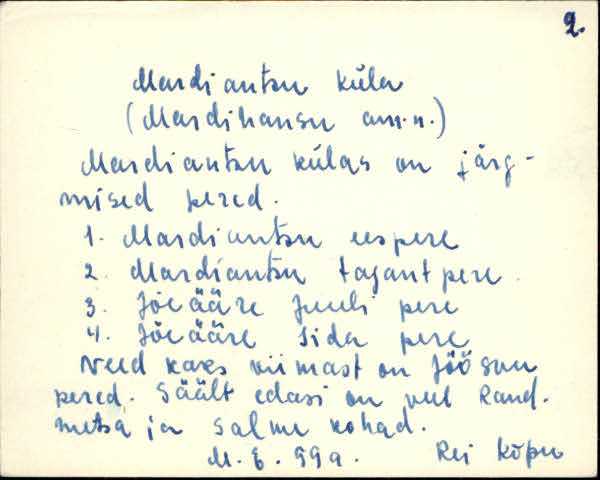 2.
Mardiantsu küla
(Mardihansu am.n.)
Mardiantsu külas on järg-
mised pered.
1. Mardiantsu eespere
2. Mardiantsu tagantpere.
3. Jõeääre Juuli pere
4. Jõeääre Iida pere
Need kaks viimast on Jõõsuu
pered. Säält edasi on veel Rand-
metsa ja Salme kohad.
M. E. 99a. Rei Kõpu